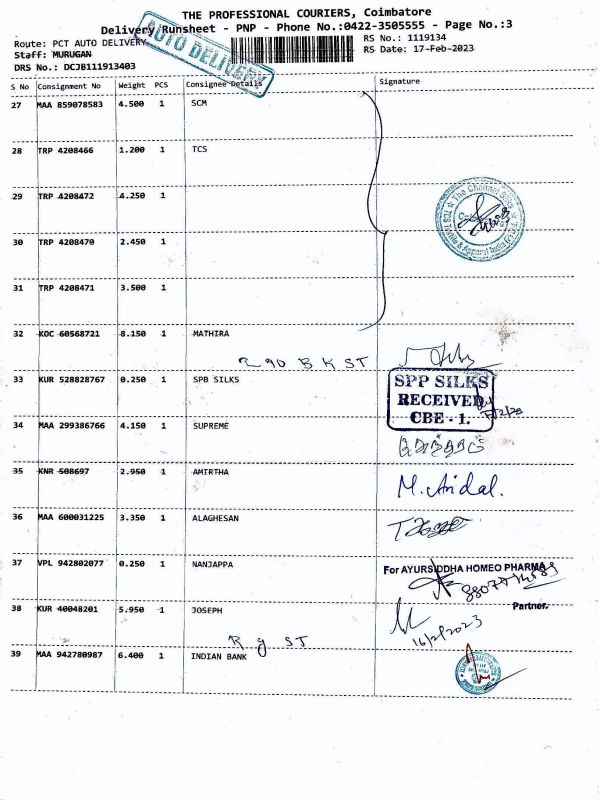 THE PROFESSIONAL COURIERS, Coimbatore
Delivery Runsheet - PNP - Phone No.:0422-3505555 - Page No.:3
Route: PCT AUTO DELIVERY
RS No.: 1119134
Staff: MURUGAN
RS Date: 17-Feb-2023
DRS No.: DCJB111913403
AUTO DELIVERY
S No Consignment No Weight PCS Consignee Details Signature
27 MAA 859078583 4.500 1 SCM
28 TRP 4208466 1.200 1 TCS
29 TRP 4208472 4.250 1
The Chennai Silks
30 TRP 4208470 2.450 1
31 TRP 4208471 3.500 1
32 KOC 60568721 8.150 1 MATHIRA
290 B K ST
33 KUR 528828767 0.250 1 SPB SILKS
SPP SILKS
RECEIVED
CBE - 1.
34 MAA 299386766 4.150 1 SUPREME
35 KNR 508697 2.950 1 AMIRTHA
36 MAA 600031225 3.350 1 ALAGHESAN
37 VPL 942802077 0.250 1 NANJAPPA
For AYURSIDDHA HOMEO PHARMA
Partner.
38 KUR 40048201 5.950 1 JOSEPH
16/2/2023
R g ST
39 MAA 942780987 6.400 1 INDIAN BANK